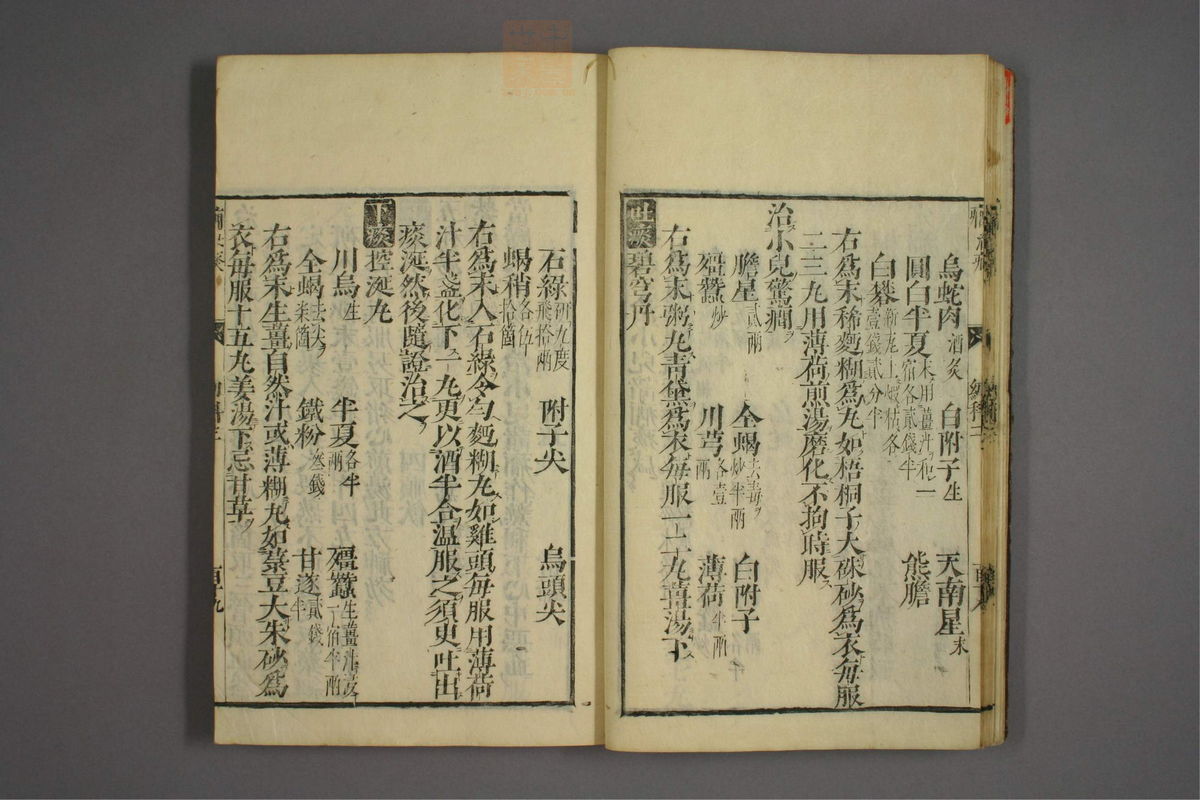 烏蛇肉酒炙 白附子生 天南星末
圓白半夏末用薑汁和一宿各貳錢半 熊膽
白礬新瓦上煅枯各壹錢貳分半
右爲末稀麪糊爲丸如梧桐子大硃砂爲衣每服
二三丸用薄荷煎湯磨化不拘時服
治小兒驚癇
膽星貳兩 全蝎去毒炒半兩 白附子
殭蠶炒 川芎各壹兩 薄荷半兩
右爲末粥丸靑黛爲衣每服一二十丸薑湯下
吐痰 碧穹丹
石綠研九度飛拾兩 附子尖 烏頭尖
蝎稍各伍拾箇
右爲末入石綠令勻麪糊丸如雞頭每服用薄荷
汁半盞化下一丸更以酒半合温服之須更吐出
痰涎然後隨證治之
下痰 控涎丸
川烏生 半夏各半兩 殭蠶生薑汁浸一宿半兩
全蝎去尖柒箇 鐵粉叁錢 甘遂貳錢半
右爲末生薑自然汁或薄糊丸如菉豆大朱砂爲
衣每服十五丸姜湯下忌甘草